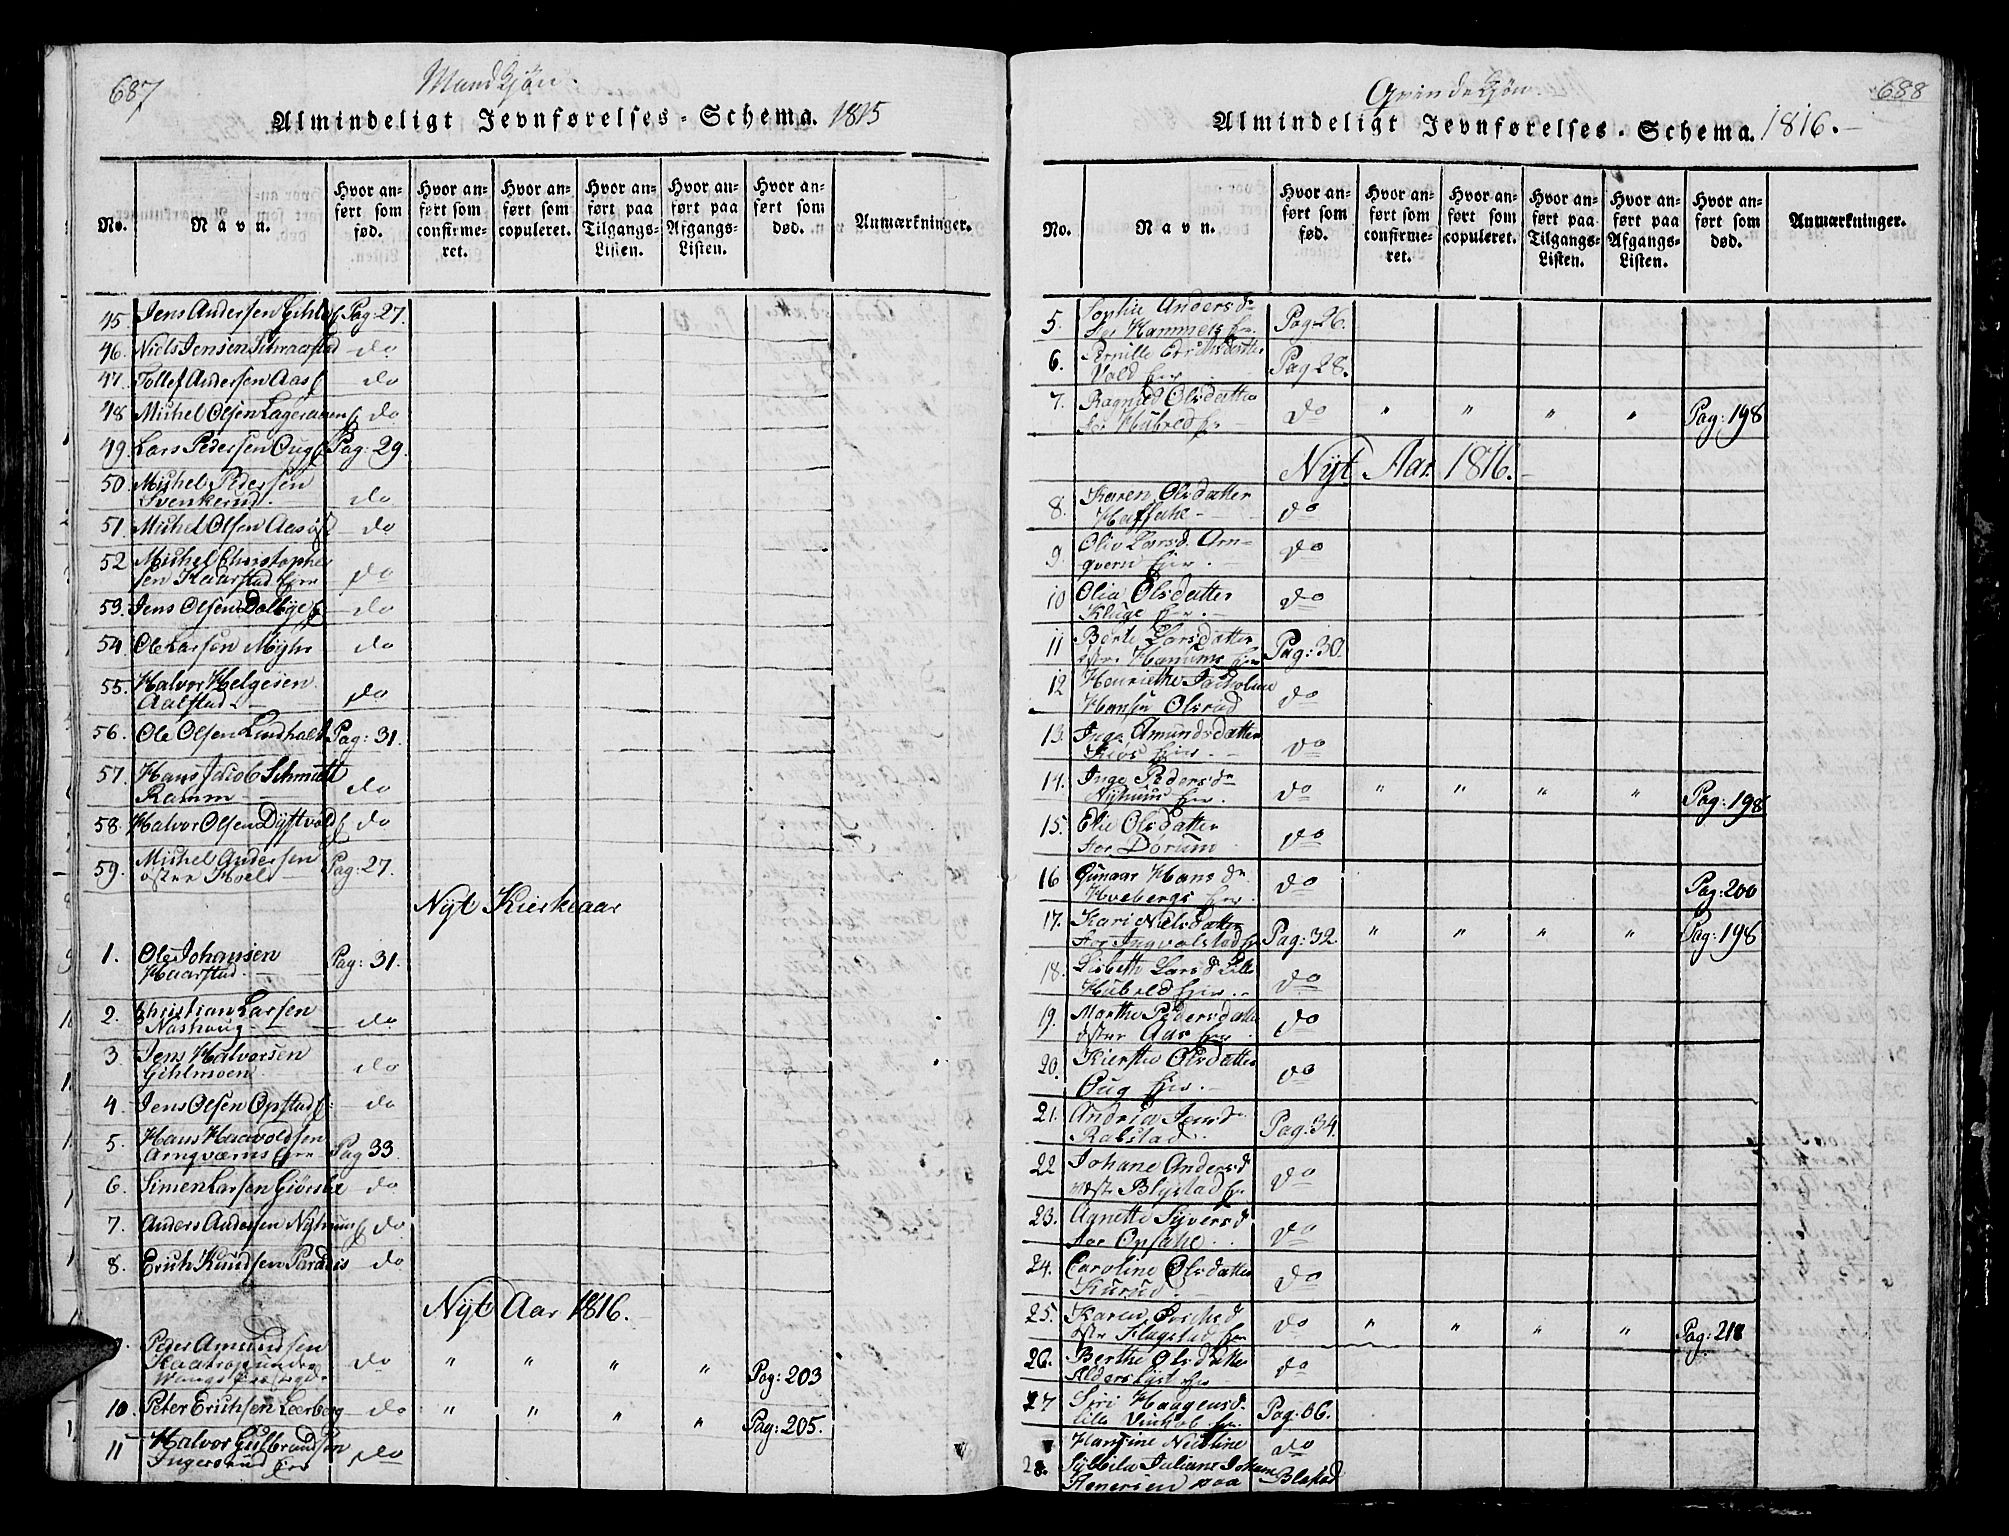 687
Mandkjøn.
Almindeligt Jevnførelses-Schema. 1815
No.
Navn.
Hvor anført som fød.
Hvor anført som confirmeret.
Hvor anført som copuleret.
Hvor anført paa Tilgangs-Listen.
Hvor anført paa Afgangs-Listen.
Hvor anført som død.
Anmærkninger.
45. Jens Andersen Gihle Pag: 27.
46. Niels Jensen do
47. Tollef Andersen Aas do
48 Michel Olsen Lageraaen do
49 Lars Pedersen Oug Pag: 29.
50. Michel Pedersen
Svenkerud. do
51. Michel Olsen Aas do
52 Michel Christopher
sen Kaarstad do
53. Jens Olsen Dalbye do
54. Ole Larsen Myhr do
55. Halvor Helgesen
Aalstad do
56. Ole Olsen Lindhalt Pag: 31.
57. Hans Jacob Schmidt
Ramm do
58. Halvor Olsen Dystvold do
59. Michel Andersen
østre Hoel Pag: 27.
Nyt Kirkeaar
1. Ole Johansen
Haarstad. Pag: 31.
2. Christian Larsen
Nashoug do
3 Jens Halvorsen
Gihlmoen do
4. Jens Olsen Opstad do
5. Hans Haavoldsen
Arnqværns Pag 33
6. Simen Larsen do
7. Anders Andersen Nyhuus do
8. Erich Knudsen Paradis do
Nyt Aar 1816.
9. Peder Amundsen
do " " " " Pag: 203
10. Peter Erichsen Leerberg do " " " " Pag: 205.
11 Halvor Gulbrandsen
do
688
Qvindekjøn.
Almindeligt Jevnførelses-Schema. 1816.
No.
Navn.
Hvor anført som fød.
Hvor anført som confirmeret.
Hvor anført som copuleret.
Hvor anført paa Tilgangs-Listen.
Hvor anført paa Afgangs-Listen.
Hvor anført som død.
Anmærkninger.
5. Sophie Andersdr
Pag: 26.
6. Pernille
Vold Pag 28.
7. Ragnild Olsdatter
Hubred do " " " " Pag: 198
Nyt Aar 1816.
8. Karen Olsdatter
do
9. Olia Larsd. Arn=
qvern do
10 Olia Olsdatter
Kluge do
11 Berte Larsdatter
Pag: 30.
12 Henriette Jacholine
Hansen Olsrud do
13. Inge Amundsdatter
do
14. Inge Pedersdr
Nyhuus do " " " " Pag: 198
15. Elie Olsdatter
Dørum do
16 Gunaar Hansdr
Hvebergs do Pag: 200
17. Kari Nielsdatter
Ingvalstad Pag: 32. " " " " Pag: 198
18. Lisbeth Larsd Lille
Hubred do
19. Marthe Pedersdatter
østre Aas do
20. Kiersti Olsdatter
Oug do
21. Andrea Jensdr
Rolstad Pag: 34.
22 Johane Andersd
Blystad do
23. Agnette Syversd
do
24. Caroline Olsdatter
Kurud do
25. Karen
Flagstad do " " " " Pag: 218
26. Berthe Olsdatter
Alderslyst do
27 Siri Haagensd.
Lille
28. Hansine Nicoline do
Juliane
paa